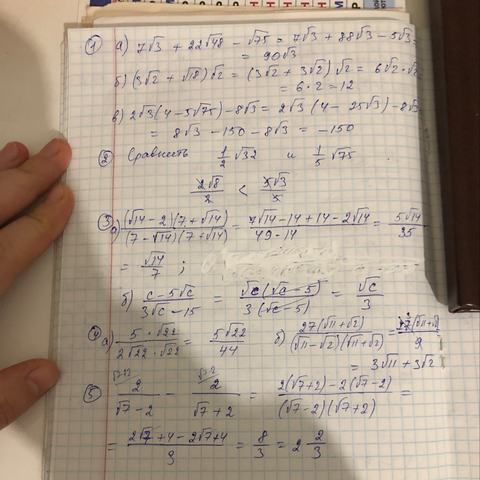 ① а) 7√3 + 22√48 − √75 = 7√3 + 88√3 − 5√3 =
= 90√3
б) (3√2 + √18)√2 = (3√2 + 3√2)√2 = 6√2·√2
= 6·2 = 12
в) 2√3(4−5√75)−8√3 = 2√3 (4− 25√3)−8√3
= 8√3 − 150 − 8√3 = −150
② Сравнить 1/2 √32 и 1/5 √75
2√8/2 < 5√3/5
③ а) (√14−2)(7+√14)/(7−√14)(7+√14) = 7√14−14+14−2√14/49−14 = 5√14/35
= √14/7 ;
б) c−5√c/3√c−15 = √c(√c−5)/3(√c−5) = √c/3
④ а) 5·√22/2√22·√22 = 5√22/44 б) 27(√11+√2)/(√11−√2)(√11+√2) = 27(√11+√2)/9
= 3√11+3√2
⑤ 2/√7−2 − 2/√7+2 = 2(√7+2)−2(√7−2)/(√7−2)(√7+2) =
= 2√7+4−2√7+4/3 = 8/3 = 2 2/3